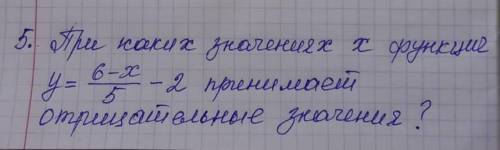 5. При каких значениях x функция
y = (6-x)/5 - 2 принимает
отрицательные значения?